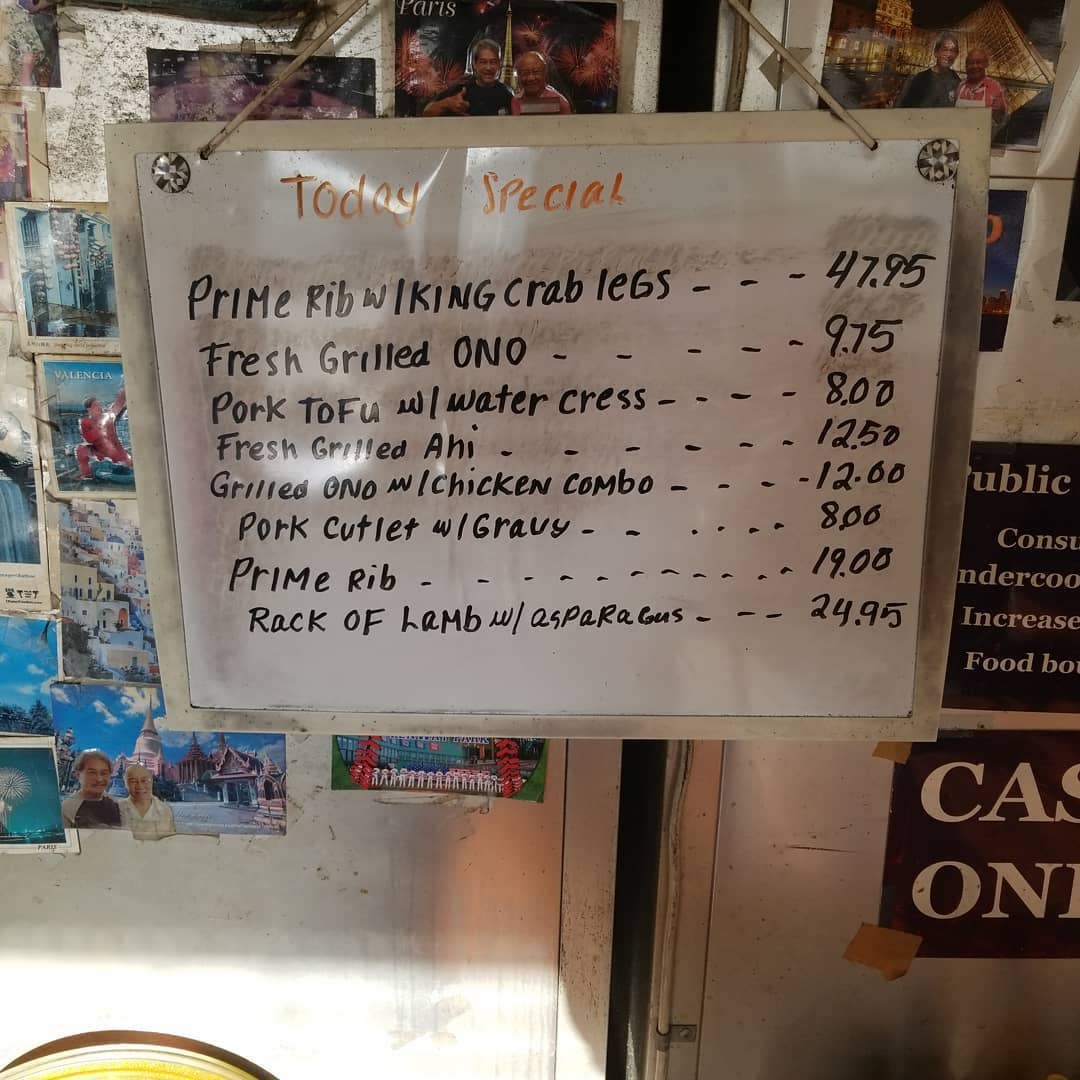 Paris
Today Special
Prime Rib w/King Crab legs - - - 47.95
Fresh Grilled ONO - - - - - 9.75
Pork Tofu w/water cress - - - - 8.00
Fresh Grilled Ahi - - - - - - 12.50
Grilled ONO w/chicken combo - - - - 12.00
Pork cutlet w/Gravy - - . . - - 8.00
Prime Rib - - - - - - - - - - - 19.00
Rack of Lamb w/ asparagus - - - 24.95
VALENCIA
Public
Consu
ndercoo
Increase
Food bou
CAS
ONL
PARIS